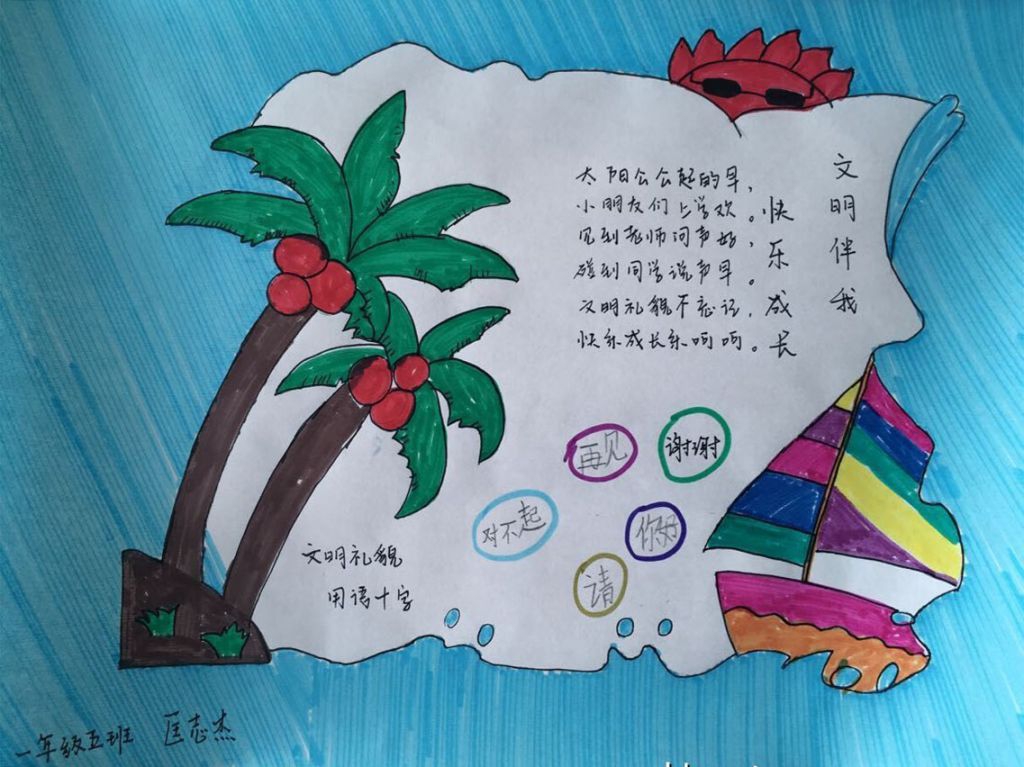 文明伴我
快乐成长
太阳公公起的早，
小朋友们上学欢。
见到老师问声好，
碰到同学说声早。
文明礼貌不忘记，
快乐成长乐呵呵。
再见
谢谢
对不起
你好
请
文明礼貌
用语十字
一年级五班 匡志杰